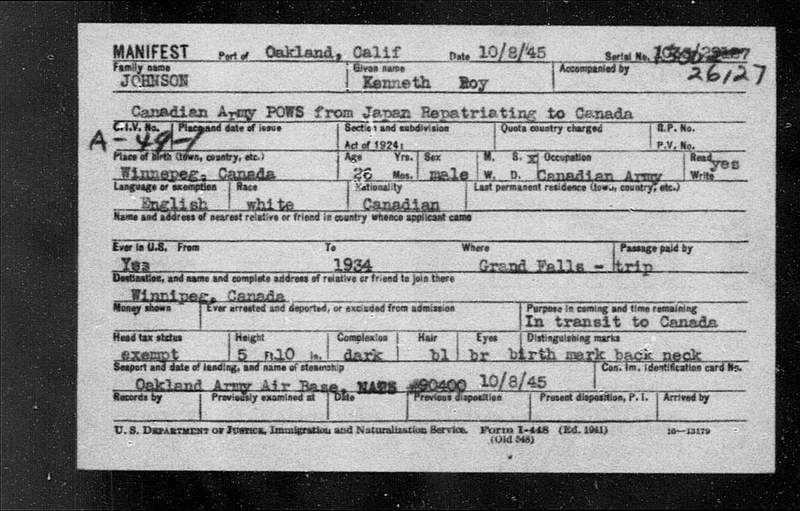 MANIFEST Port of Oakland, Calif Date 10/8/45 Serial No.
Family name Given name Accompanied by 26127
JOHNSON Kenneth Roy
Canadian Army POWS from Japan Repatriating to Canada
C.I.V. No. Place and date of issue Section and subdivision Quota country charged R.P. No.
A-49-1 Act of 1924: P.V. No.
Place of birth (town, country, etc.) Age Yrs. Sex M. S. X Occupation Read yes
Winnepeg, Canada 26 Mos. male W. D. Canadian Army Write
Language or exemption Race Nationality Last permanent residence (town, country, etc.)
English white Canadian
Name and address of nearest relative or friend in country whence applicant came
Ever in U.S. From To Where Passage paid by
Yes 1934 Grand Falls - trip
Destination, and name and complete address of relative or friend to join there
Winnipeg, Canada
Money shown Ever arrested and deported, or excluded from admission Purpose in coming and time remaining
In transit to Canada
Head tax status Height Complexion Hair Eyes Distinguishing marks
exempt 5 Ft. 10 In. dark bl br birth mark back neck
Seaport and date of landing, and name of steamship Con. Im. Identification card No.
Oakland Army Air Base, #90400 10/8/45
Records by Previously examined at Date Previous disposition Present disposition, P. I. Arrived by
U. S. DEPARTMENT OF JUSTICE, Immigration and Naturalization Service. Form I-448 (Ed. 1941) 16—13179
(Old 548)